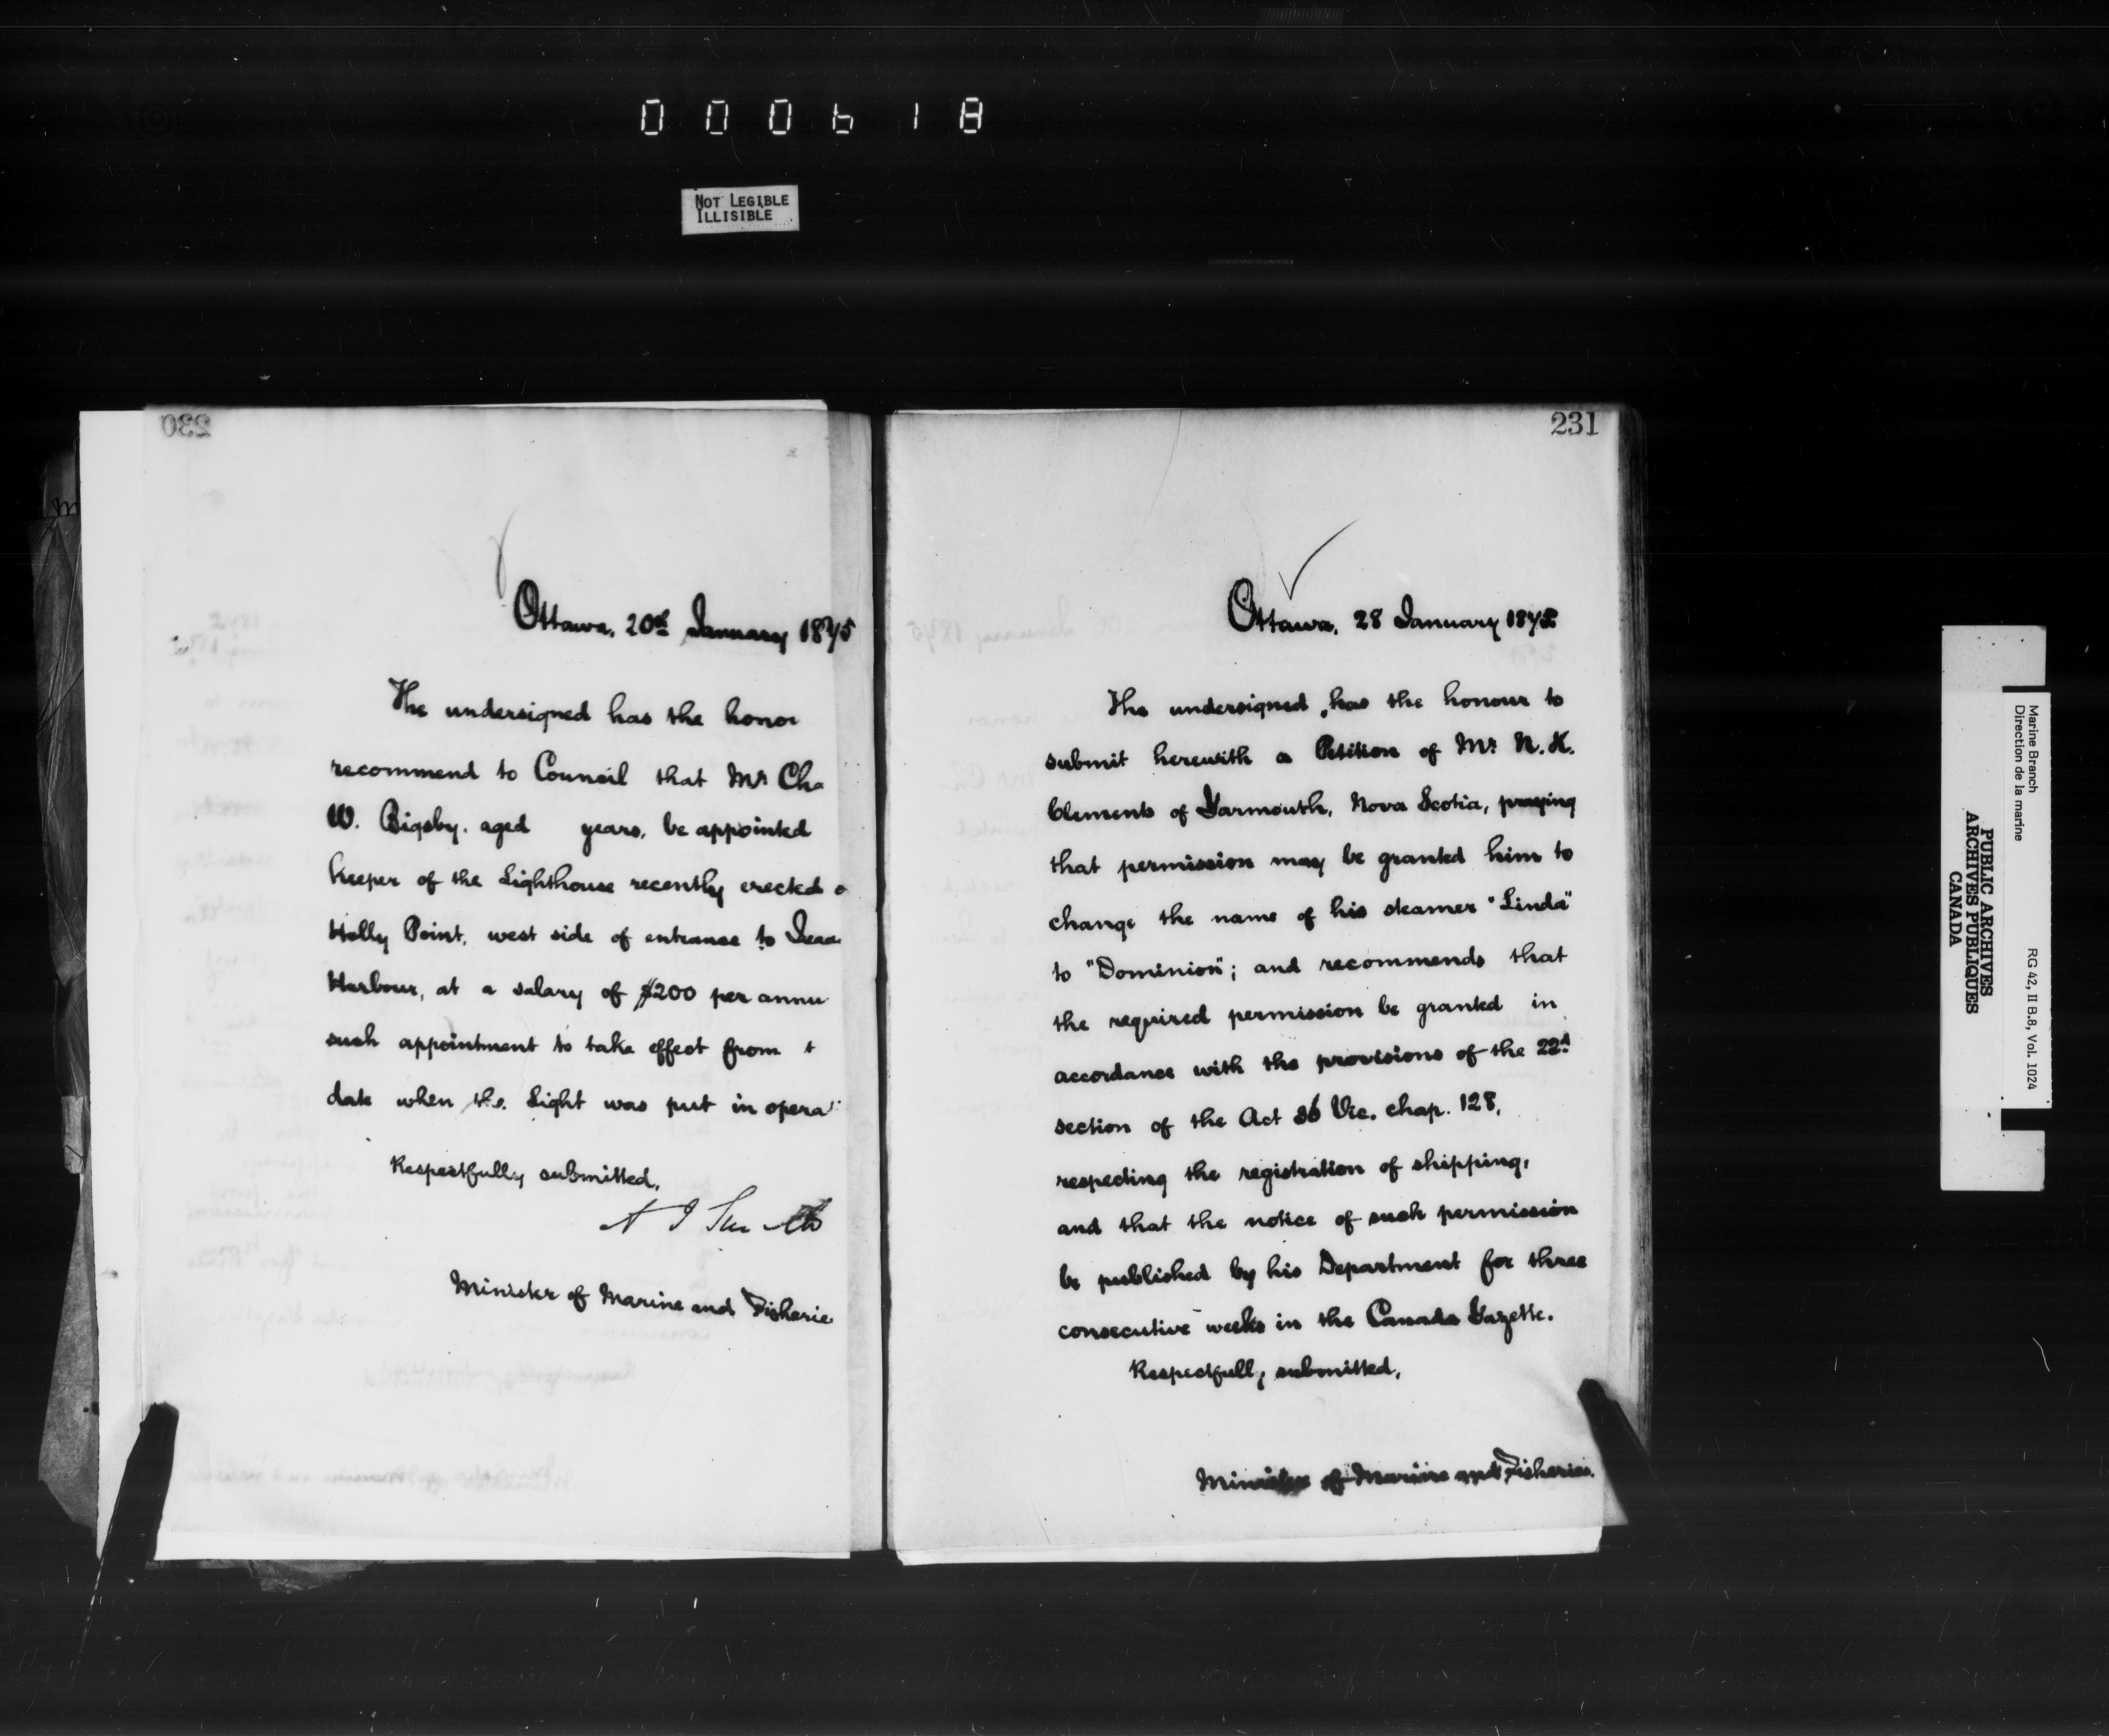 000618
NOT LEGIBLE
ILLISIBLE
230
Ottawa, 20th January 1875
The undersigned has the honor
recommend to Council that Mr Cha
W. Bigsby, aged years, be appointed
keeper of the Lighthouse recently erected o
Holly Point, west side of entrance to
Harbour, at a salary of $200 per annu
such appointment to take effect from t
date when the Light was put in opera
Respectfully submitted,
A J Smith
Minister of Marine and Fisherie
231
Ottawa, 28 January 1875
The undersigned has the honour to
submit herewith a Petition of Mr N. K.
Clements of Yarmouth, Nova Scotia, praying
that permission may be granted him to
change the name of his steamer "Linda"
to "Dominion"; and recommends that
the required permission be granted in
accordance with the provisions of the 22d
section of the Act 36 Vic. chap. 128,
respecting the registration of shipping,
and that the notice of such permission
be published by his Department for three
consecutive weeks in the Canada Gazette.
Respectfully submitted,
Minister of Marine and Fisheries.
Marine Branch RG 42, II B.8, Vol. 1024
Direction de la marine
PUBLIC ARCHIVES
ARCHIVES PUBLIQUES
CANADA